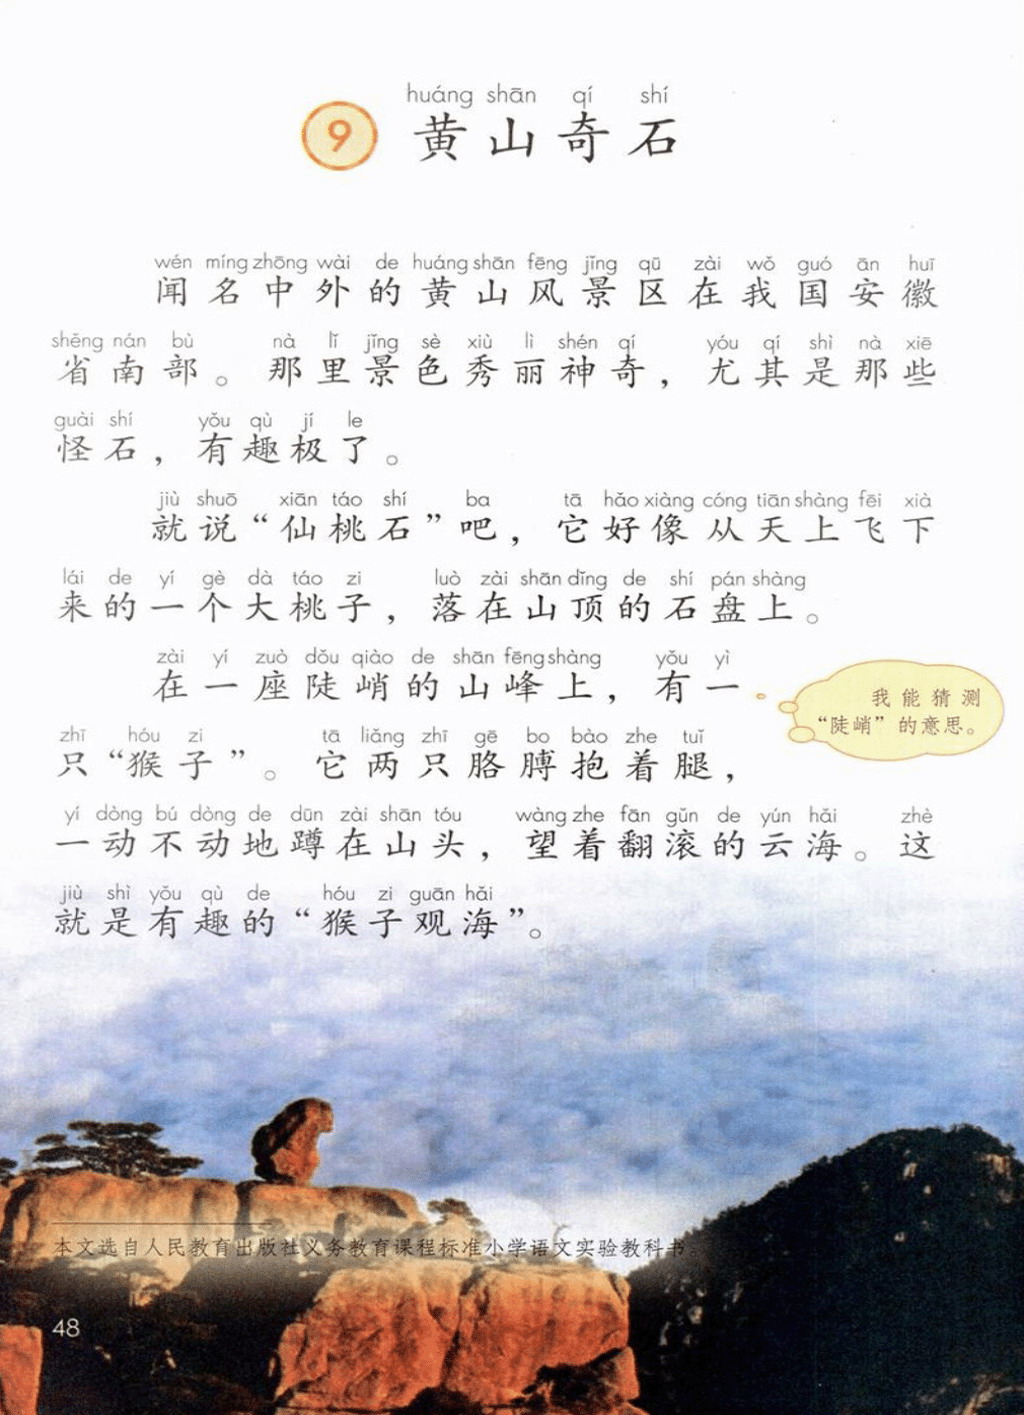 huáng shān qí shí
9 黄山奇石
wén míng zhōng wài de huáng shān fēng jǐng qū zài wǒ guó ān huī
闻名中外的黄山风景区在我国安徽
shěng nán bù nà lǐ jǐng sè xiù lì shén qí yóu qí shì nà xiē
省南部。那里景色秀丽神奇，尤其是那些
guài shí yǒu qù jí le
怪石，有趣极了。
jiù shuō xiān táo shí ba tā hǎo xiàng cóng tiān shàng fēi xià
就说“仙桃石”吧，它好像从天上飞下
lái de yí gè dà táo zi luò zài shān dǐng de shí pán shàng
来的一个大桃子，落在山顶的石盘上。
zài yí zuò dǒu qiào de shān fēng shàng yǒu yì
在一座陡峭的山峰上，有一
我能猜测
“陡峭”的意思。
zhī hóu zi tā liǎng zhī gē bo bào zhe tuǐ
只“猴子”。它两只胳膊抱着腿，
yí dòng bú dòng de dūn zài shān tóu wàng zhe fān gǔn de yún hǎi zhè
一动不动地蹲在山头，望着翻滚的云海。这
jiù shì yǒu qù de hóu zi guān hǎi
就是有趣的“猴子观海”。
本文选自人民教育出版社义务教育课程标准小学语文实验教科书。
48